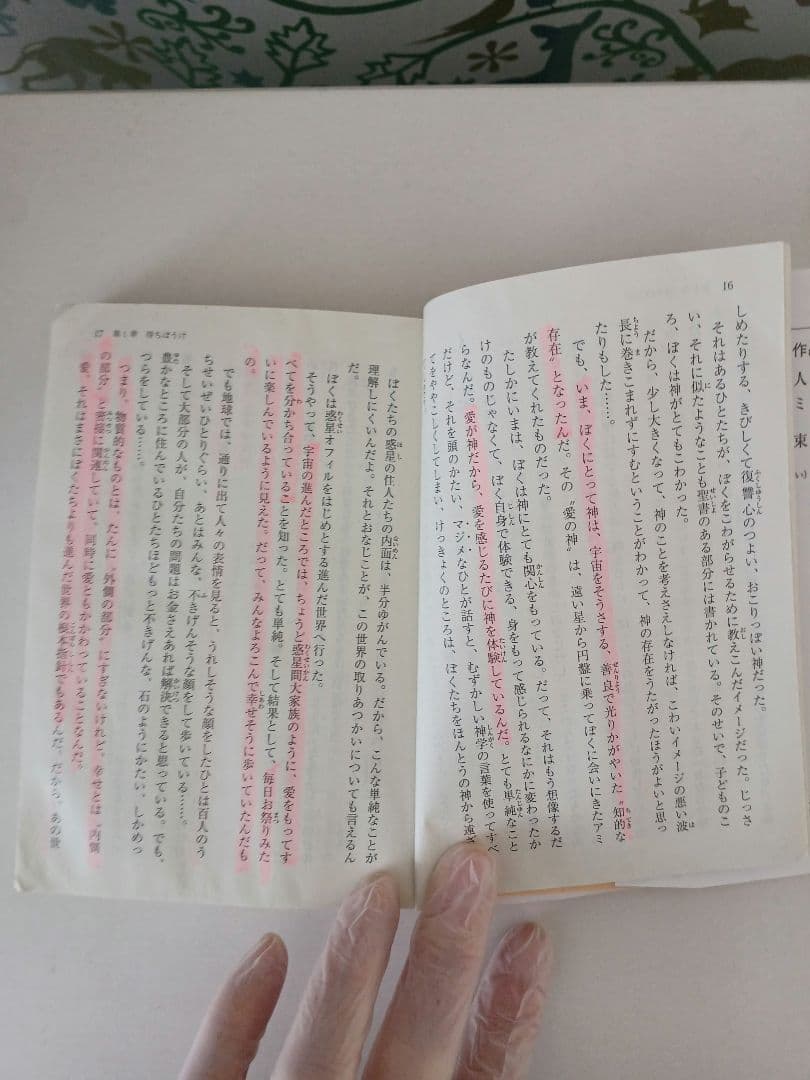 16
しめたりする、きびしくて復讐心のつよい、おこりっぽい神だった。
それはあるひとたちが、ぼくをこわがらせるために教えこんだイメージだった。じっさ
い、それに似たようなことも聖書のある部分には書かれている。そのせいで、子どものこ
ろ、ぼくは神がとてもこわかった。
だから、少し大きくなって、神のことを考えさえしなければ、こわいイメージの悪い波
長に巻きこまれずにすむということがわかって、神の存在をうたがったほうがよいと思っ
たりもした……。
でも、いま、ぼくにとって神は、宇宙をそうさする、善良で光りかがやいた〝知的な
存在〟となったんだ。その〝愛の神〟は、遠い星から円盤に乗ってぼくに会いにきたアミ
が教えてくれたものだった。
たしかにいまは、ぼくは神にとても関心をもっている。だって、それはもう想像するだ
けのものじゃなくて、ぼく自身で体験できる、身をもって感じられるなにかに変わったか
らなんだ。愛が神だから、愛を感じるたびに神を体験しているんだ。とても単純なこと
だけど、それを頭のかたい、マジメなひとが話すと、むずかしい神学の言葉を使ってすべ
てをややこしくしてしまい、けっきょくのところは、ぼくたちをほんとうの神から遠ざ
17 第1章 待ちぼうけ
ぼくたちの惑星の住人たちの内面は、半分ゆがんでいる。だから、こんな単純なことが
理解しにくいんだよ。それとおなじことが、この世界の取りあつかいについても言えるん
だ。
ぼくは惑星オフィルをはじめとする進んだ世界へ行った。
そうやって、宇宙の進んだところでは、ちょうど惑星間大家族のように、愛をもってす
べてを分かち合っていることを知った。とても単純。そして結果として、毎日お祭りみた
いに楽しんでいるように見えた。だって、みんなよろこんで幸せそうに歩いていたんだも
の。
でも地球では、通りに出て人々の表情を見ると、うれしそうな顔をしたひとは百人のう
ちせいぜいひとりぐらい、あとはみんな、不きげんそうな顔をして歩いている……。
そして大部分の人が、自分たちの問題はお金さえあれば解決できると思っている。でも、
豊かなところに住んでいるひとたちほどもっと不きげんな、石のようにかたい、しかめっ
つらをしている……。
つまり、物質的なものとは、たんに〝外側の部分〟にすぎないけれど、幸せとは、〝内側
の部分〟と密接に関連していて、同時に愛ともかかわっていることなんだ。
愛、それはまさにぼくたちよりも進んだ世界の根本指針でもあるんだ。だから、あの世
作
人
ミ
東